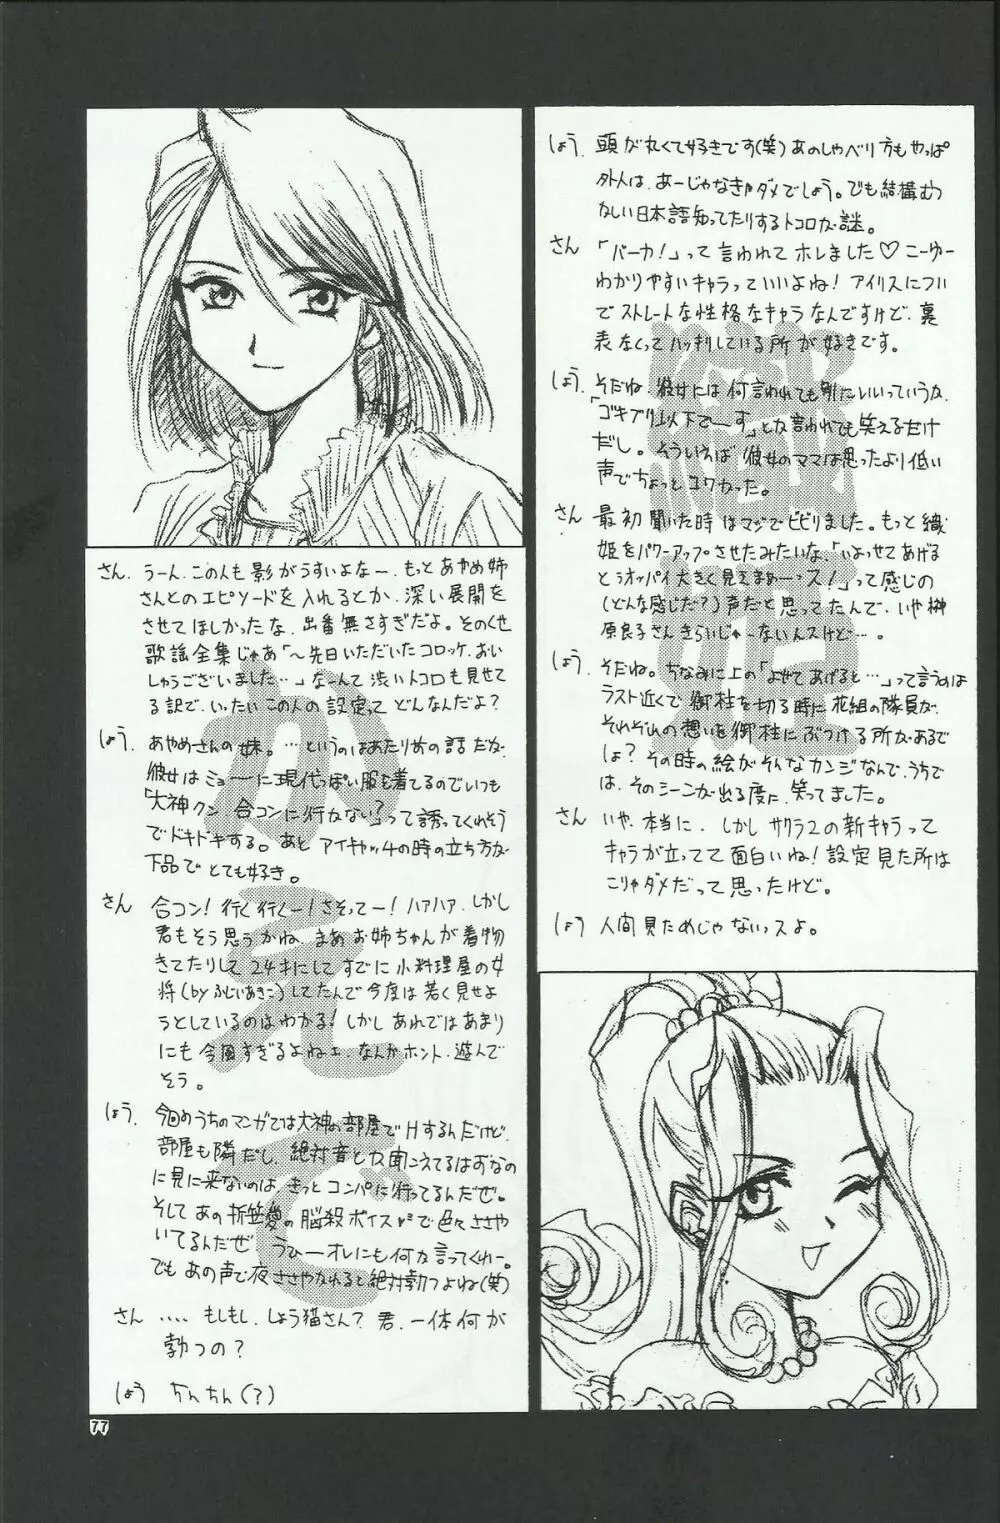 しょう. 頭が丸くて好きです(笑) あのしゃべり方もやっぱ
外人は、あーじゃなきゃダメでしょう。でも結構むつ
かしい日本語知ってたりするトコロが謎。
さん 「バーカ!」って言われてホレました♡こーゆー
わかりやすいキャラっていいよね! アイリスについ
でストレートな性格なキャラなんですけど、裏
表なくってハッキリしている所が好きです。
しょう. そだね、彼女には何言われても別にいいっていうか、
「ゴキブリ以下でーす」とか言われても笑えるだけ
だし。そういえば彼女のママは思ったより低い
声でちょっとコワかった。
さん 最初聞いた時はマジでビビりました。もっと織
姫をパワーアップさせたみたいな、「いよせてあげる
とうオッパイ大きく見えまぁーっス!」って感じの
(どんな感じだ?)声だと思ってたんで、いや榊
原良子さんきらいじゃーないんスけど…。
しょう. そだね。ちなみに上の「よせてあげると…」って言うのは
ラスト近くで御柱を切る時に花組の隊員が、
それぞれの想いを御柱にぶつける所があるで
しょ? その時の絵がそんなカンジなんで、うちで
は、そのシーンが出る度に、笑ってました。
さん いや、本当に、しかしサクラ2の新キャラって
キャラが立ってて面白いね! 設定見た所は
こりゃダメだって思ったけど。
しょう 人間見ためじゃないっスよ。
さん. うーん、この人も影がうすいよなー、もっとあやめ姉
さんとのエピソードを入れるとか、深い展開を
させてほしかったな、出番無さすぎだよ。そのくせ
歌謡全集じゃあ「～先日いただいたコロッケ、おい
しゅうございました…」なーんて渋いトコロも見せて
る訳で、いったいこの人の設定ってどんなんだよ?
しょう. あやめさんの妹。…というのはあたりめの話だが、
彼女はミョーに現代っぽい服も着てるのでいつも
「大神クン、合コンに行かない?」って誘ってくれそう
でドキドキする。あと アイキャッチの時の立ち方が
下品でとても好き。
さん 合コン! 行く行くー! さそってー! ハァハァ、しかし
君もそう思うかね、まあお姉ちゃんが着物
きてたりして24才にしてすでに小料理屋の女
将(byふじいあきこ)してたんで今度は若く見せよ
うとしているのはわかる! しかしあれではあまり
にも今風すぎるよねェ、なんかホント、遊んで
そう。
しょう. 今回のうちのマンガでは大神の部屋でHするんだけど、
部屋も隣だし、絶対音とか聞こえてるはずなの
に見に来ないのは、きっとコンパに行ってるんだぜ。
そしてあの折笠愛の脳殺ボイスで色々ささや
いてるんだぜ うひーオレにも何か言ってくれー。
でもあの声で夜ささやかれると絶対勃つよね(笑)
さん …. もしもし、しょう猫さん? 君、一体何が
勃つの?
しょう ちんちん(?)
かえで
織姫
77